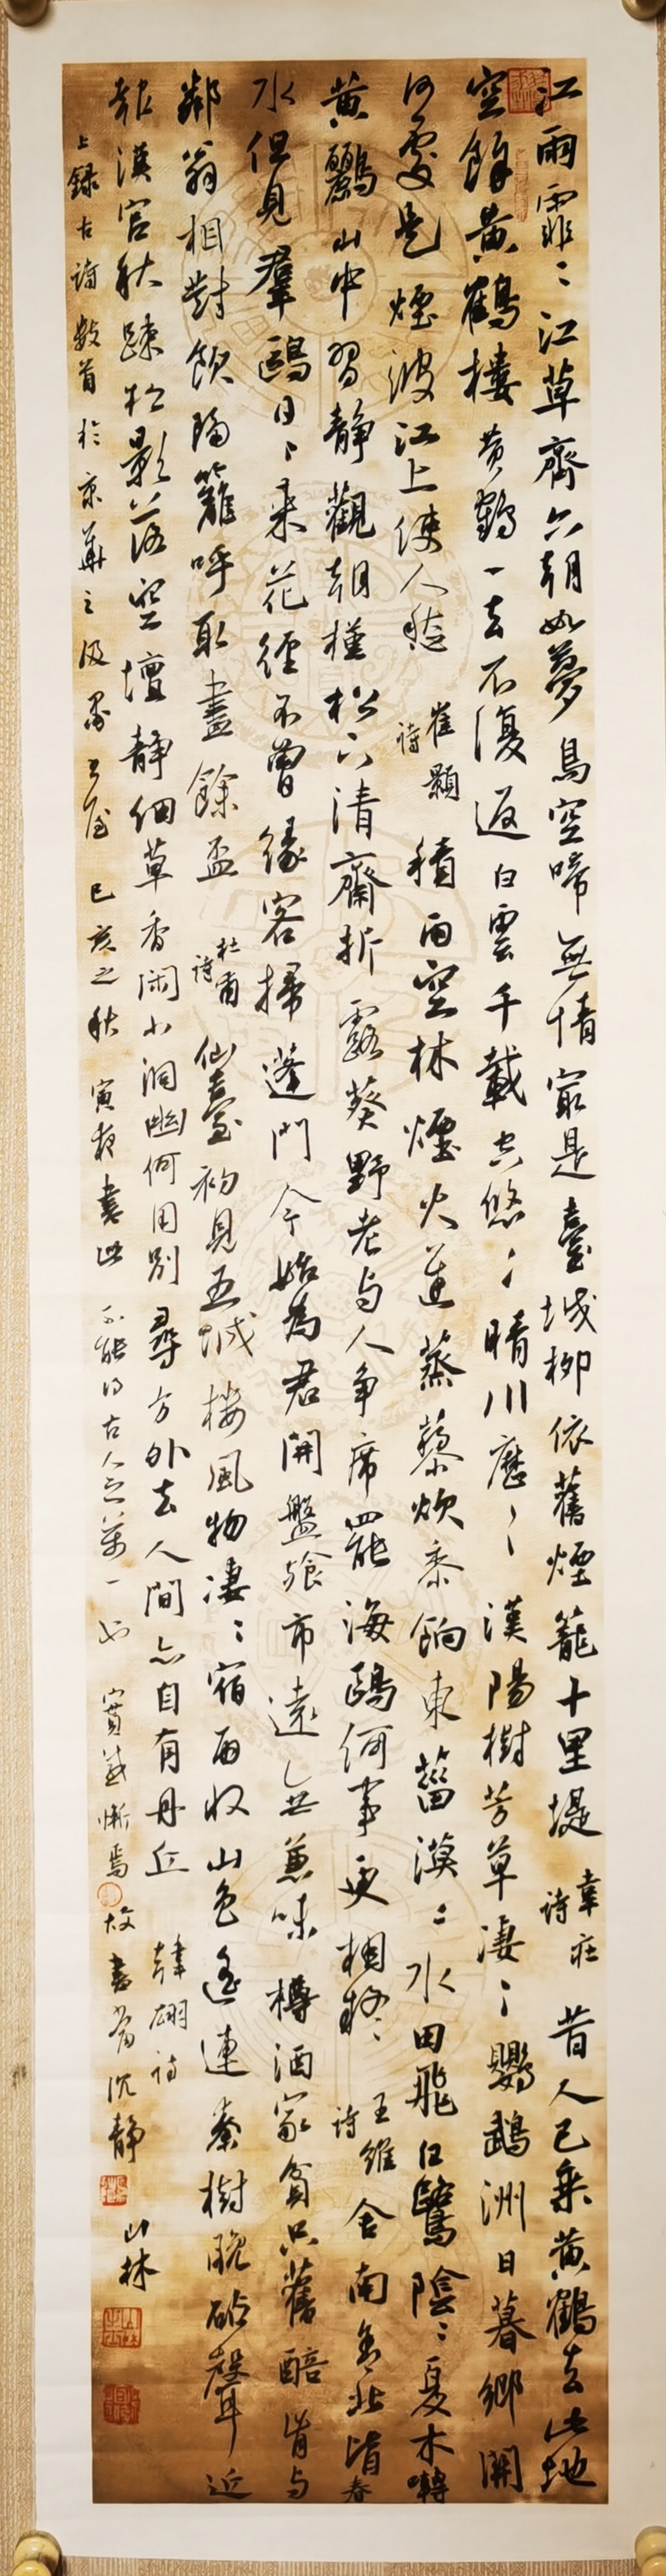 江雨霏〻江草齊六朝如夢鳥空啼無情最是臺城柳依舊煙籠十里堤 韋莊詩 昔人已乘黄鶴去此地
空餘黄鶴樓黄鶴一去不復返白雲千載空悠〻晴川歷〻漢陽樹芳草凄〻鸚鵡洲日暮鄉關
何處是煙波江上使人愁 崔顥詩 積雨空林煙火遲蒸藜炊黍餉東菑漠〻水田飛白鷺陰〻夏木囀
黄鸝山中習静觀朝槿松下清齋折露葵野老与人争席罷海鷗何事更相疑 王維詩 舍南舍北皆春
水但見羣鷗日〻來花徑不曾緣客掃蓬門今始為君開盤飱市遠無兼味樽酒家貧只舊醅肯与
鄰翁相對飲隔籬呼取盡餘盃 杜甫詩 仙臺初見五城樓風物凄〻宿雨收山色遥連秦樹晚砧聲近
報漢宫秋疎松影落空壇静细草香闲小洞幽何用别尋方外去人間亦自有丹丘 韓翃詩
上録古詩数首於京華之汲 己亥之秋寅夜書此不能得古人之萬一也 實感慚焉 故書當沉静 山林